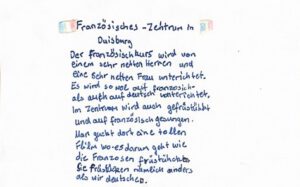 Französisches-Zentrum in
Duisburg
Der französischkurs wird von
einem sehr netten Herren und
eine Sehr netten Frau unterichtet.
Es wird sowol auf französich-
als auch auf deutsch unterichtet.
im Zentrum wird auch gefrüstückt
und auf französisch gesungen.
Man guckt dort eine tollen
Film wo es darum geht wie
die Franzosen früstücken.
Die früstücken nämlich anders
als wir deutschen.